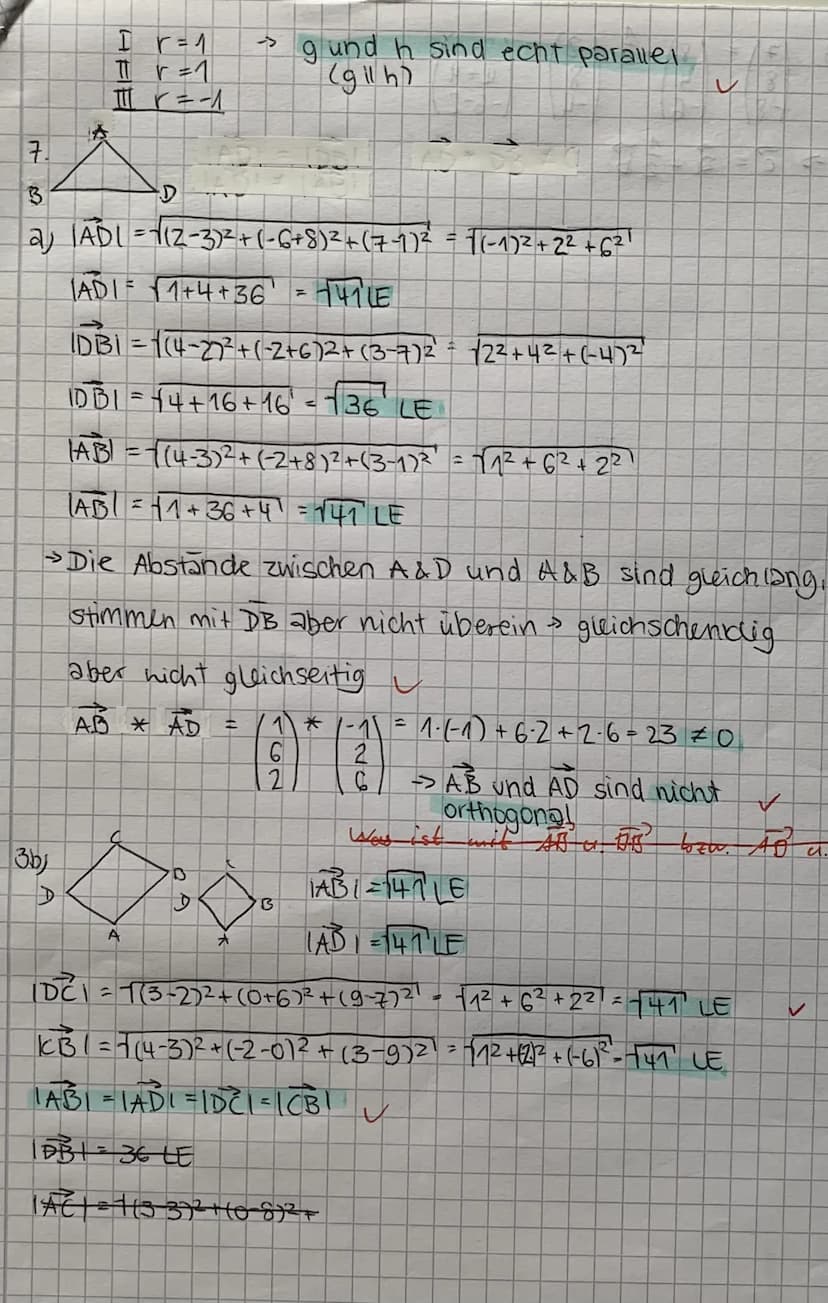 I r = 1 → g und h sind echt parallel
II r = 1 (g || h)
III r = -1 ✓
7. A
B D
a) |AD| = √(2-3)² + (-6+8)² + (7-1)² = √(-1)² + 2² + 6²
|AD| = √1+4+36 = √41 LE
|DB| = √(4-2)² + (-2+6)² + (3-7)² = √2² + 4² + (-4)²
|DB| = √4+16+16 = √36 LE
|AB| = √(4-3)² + (-2+8)² + (3-1)² = √1² + 6² + 2²
|AB| = √1+36+4 = √41 LE
→ Die Abstände zwischen A & D und A & B sind gleichlang,
stimmen mit DB aber nicht überein → gleichschenklig
aber nicht gleichseitig ✓
AB * AD = (1 6 2) * (-1 2 6) = 1·(-1) + 6·2 + 2·6 = 23 ≠ 0
→ AB und AD sind nicht ✓
orthogonal
Was ist mit AB u. DB bzw. AD u.
3b) C B D A C B D A
|AB| = √41 LE
|AD| = √41 LE
|DC| = √(3-2)² + (0+6)² + (9-7)² = √1² + 6² + 2² = √41 LE ✓
|CB| = √(4-3)² + (-2-0)² + (3-9)² = √1² + (2)² + (-6)² = √41 LE
|AB| = |AD| = |DC| = |CB| ✓
|DB| = 36 LE
|AC| = √(3-3)² + (0-8)² +